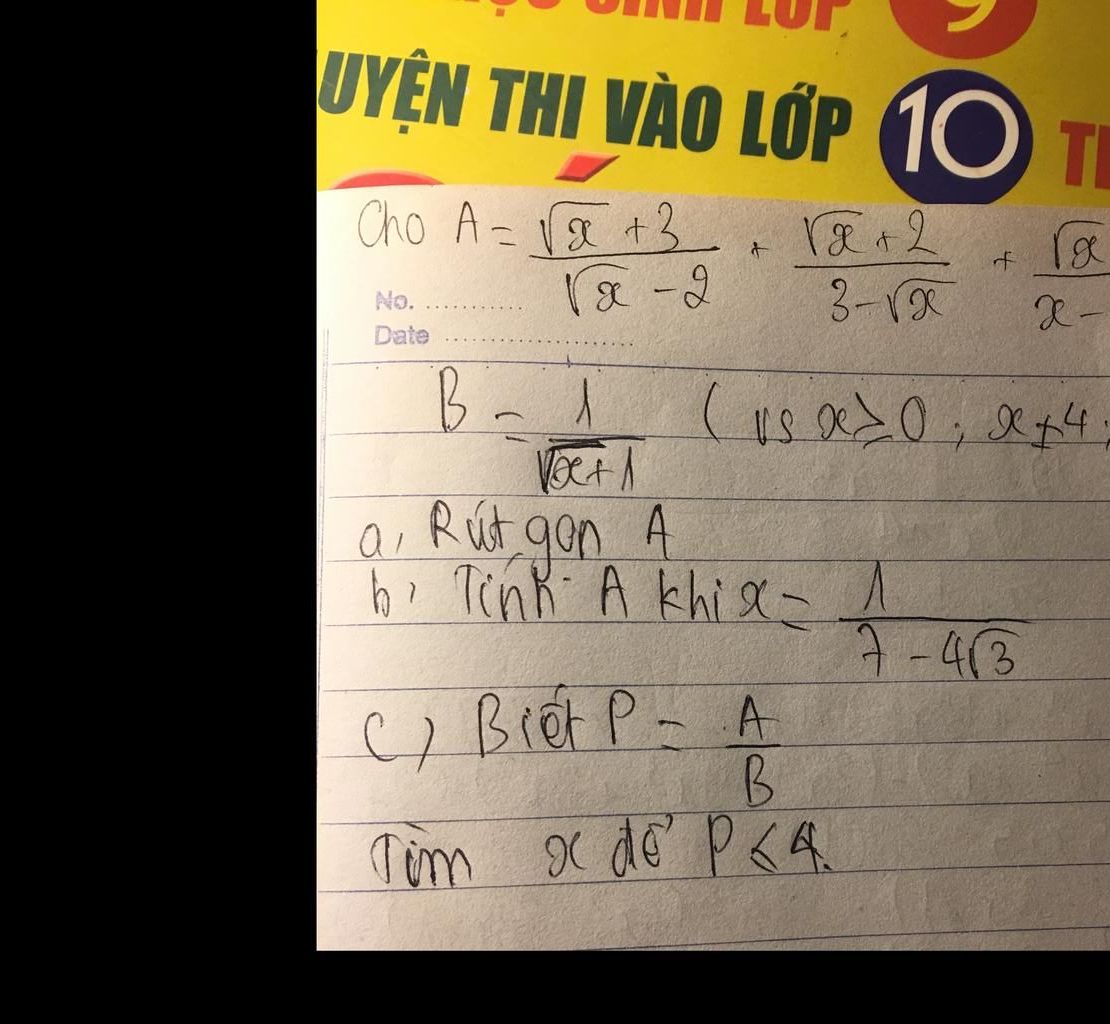 SINH LỚP 9
UYỆN THI VÀO LỚP 10
Cho A = \frac{\sqrt{x}+3}{\sqrt{x}-2} + \frac{\sqrt{x}+2}{3-\sqrt{x}} + \frac{\sqrt{x}}{x-}
No. ............
Date ......................
B = \frac{1}{\sqrt{x}+1} ( vs x ≥ 0 ; x ≠ 4 ;
a, Rút gọn A
b, Tính A khi x = \frac{1}{7-4\sqrt{3}}
c) Biết P = \frac{A}{B}
Tìm x để P < 4.